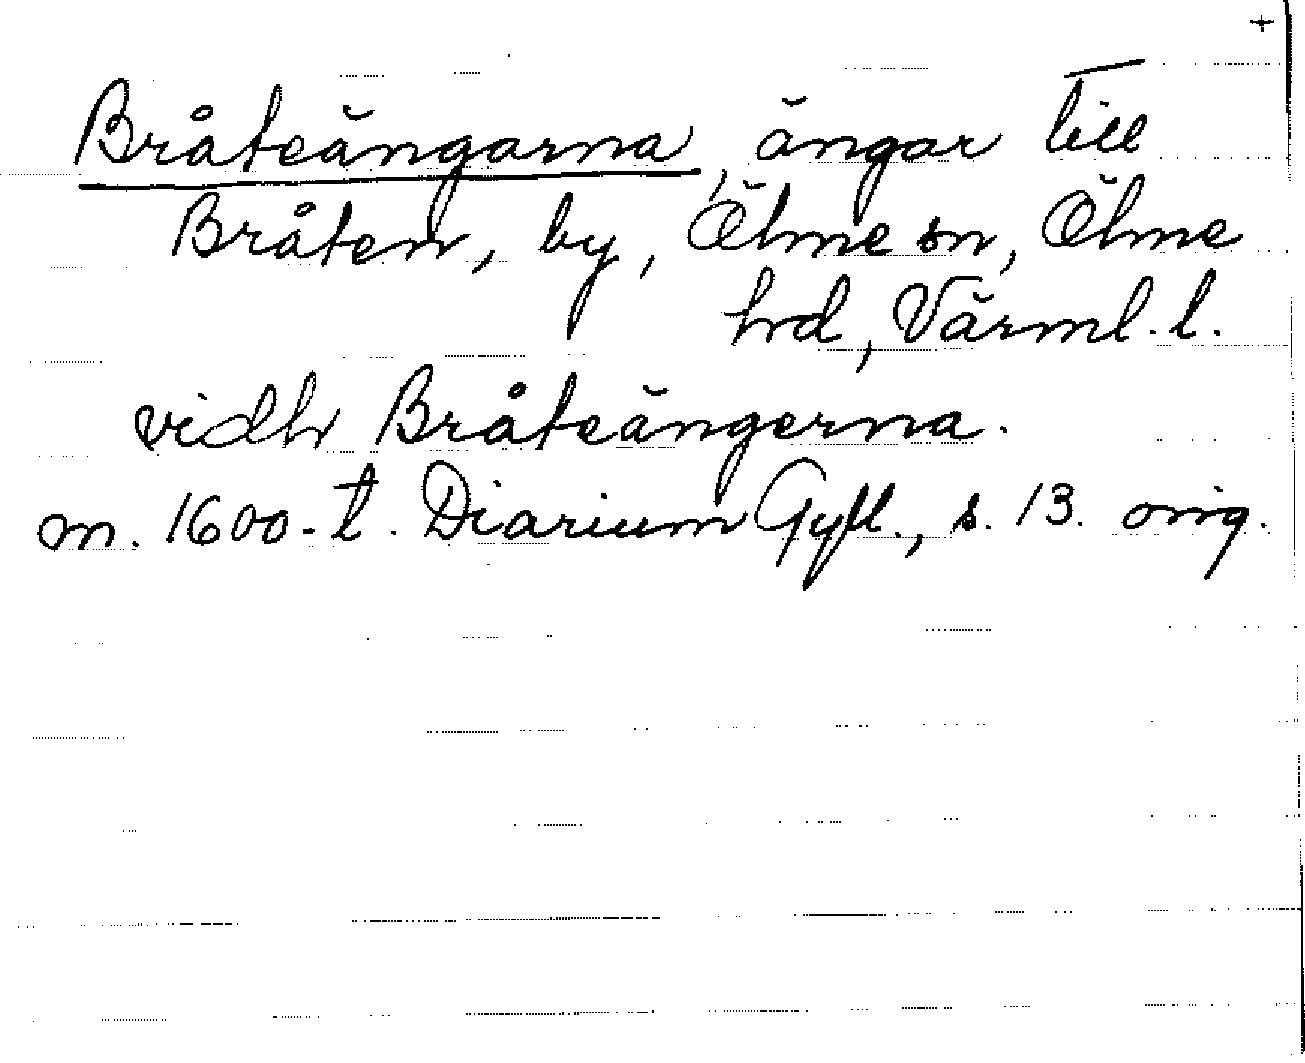 +
Bråteängarna, ängar till
Bråten, by, Ölme sn, Ölme
hd, Värml. l.
vidh Bråteängerna.
m. 1600-t. Diarium Gyll., s. 13. orig.